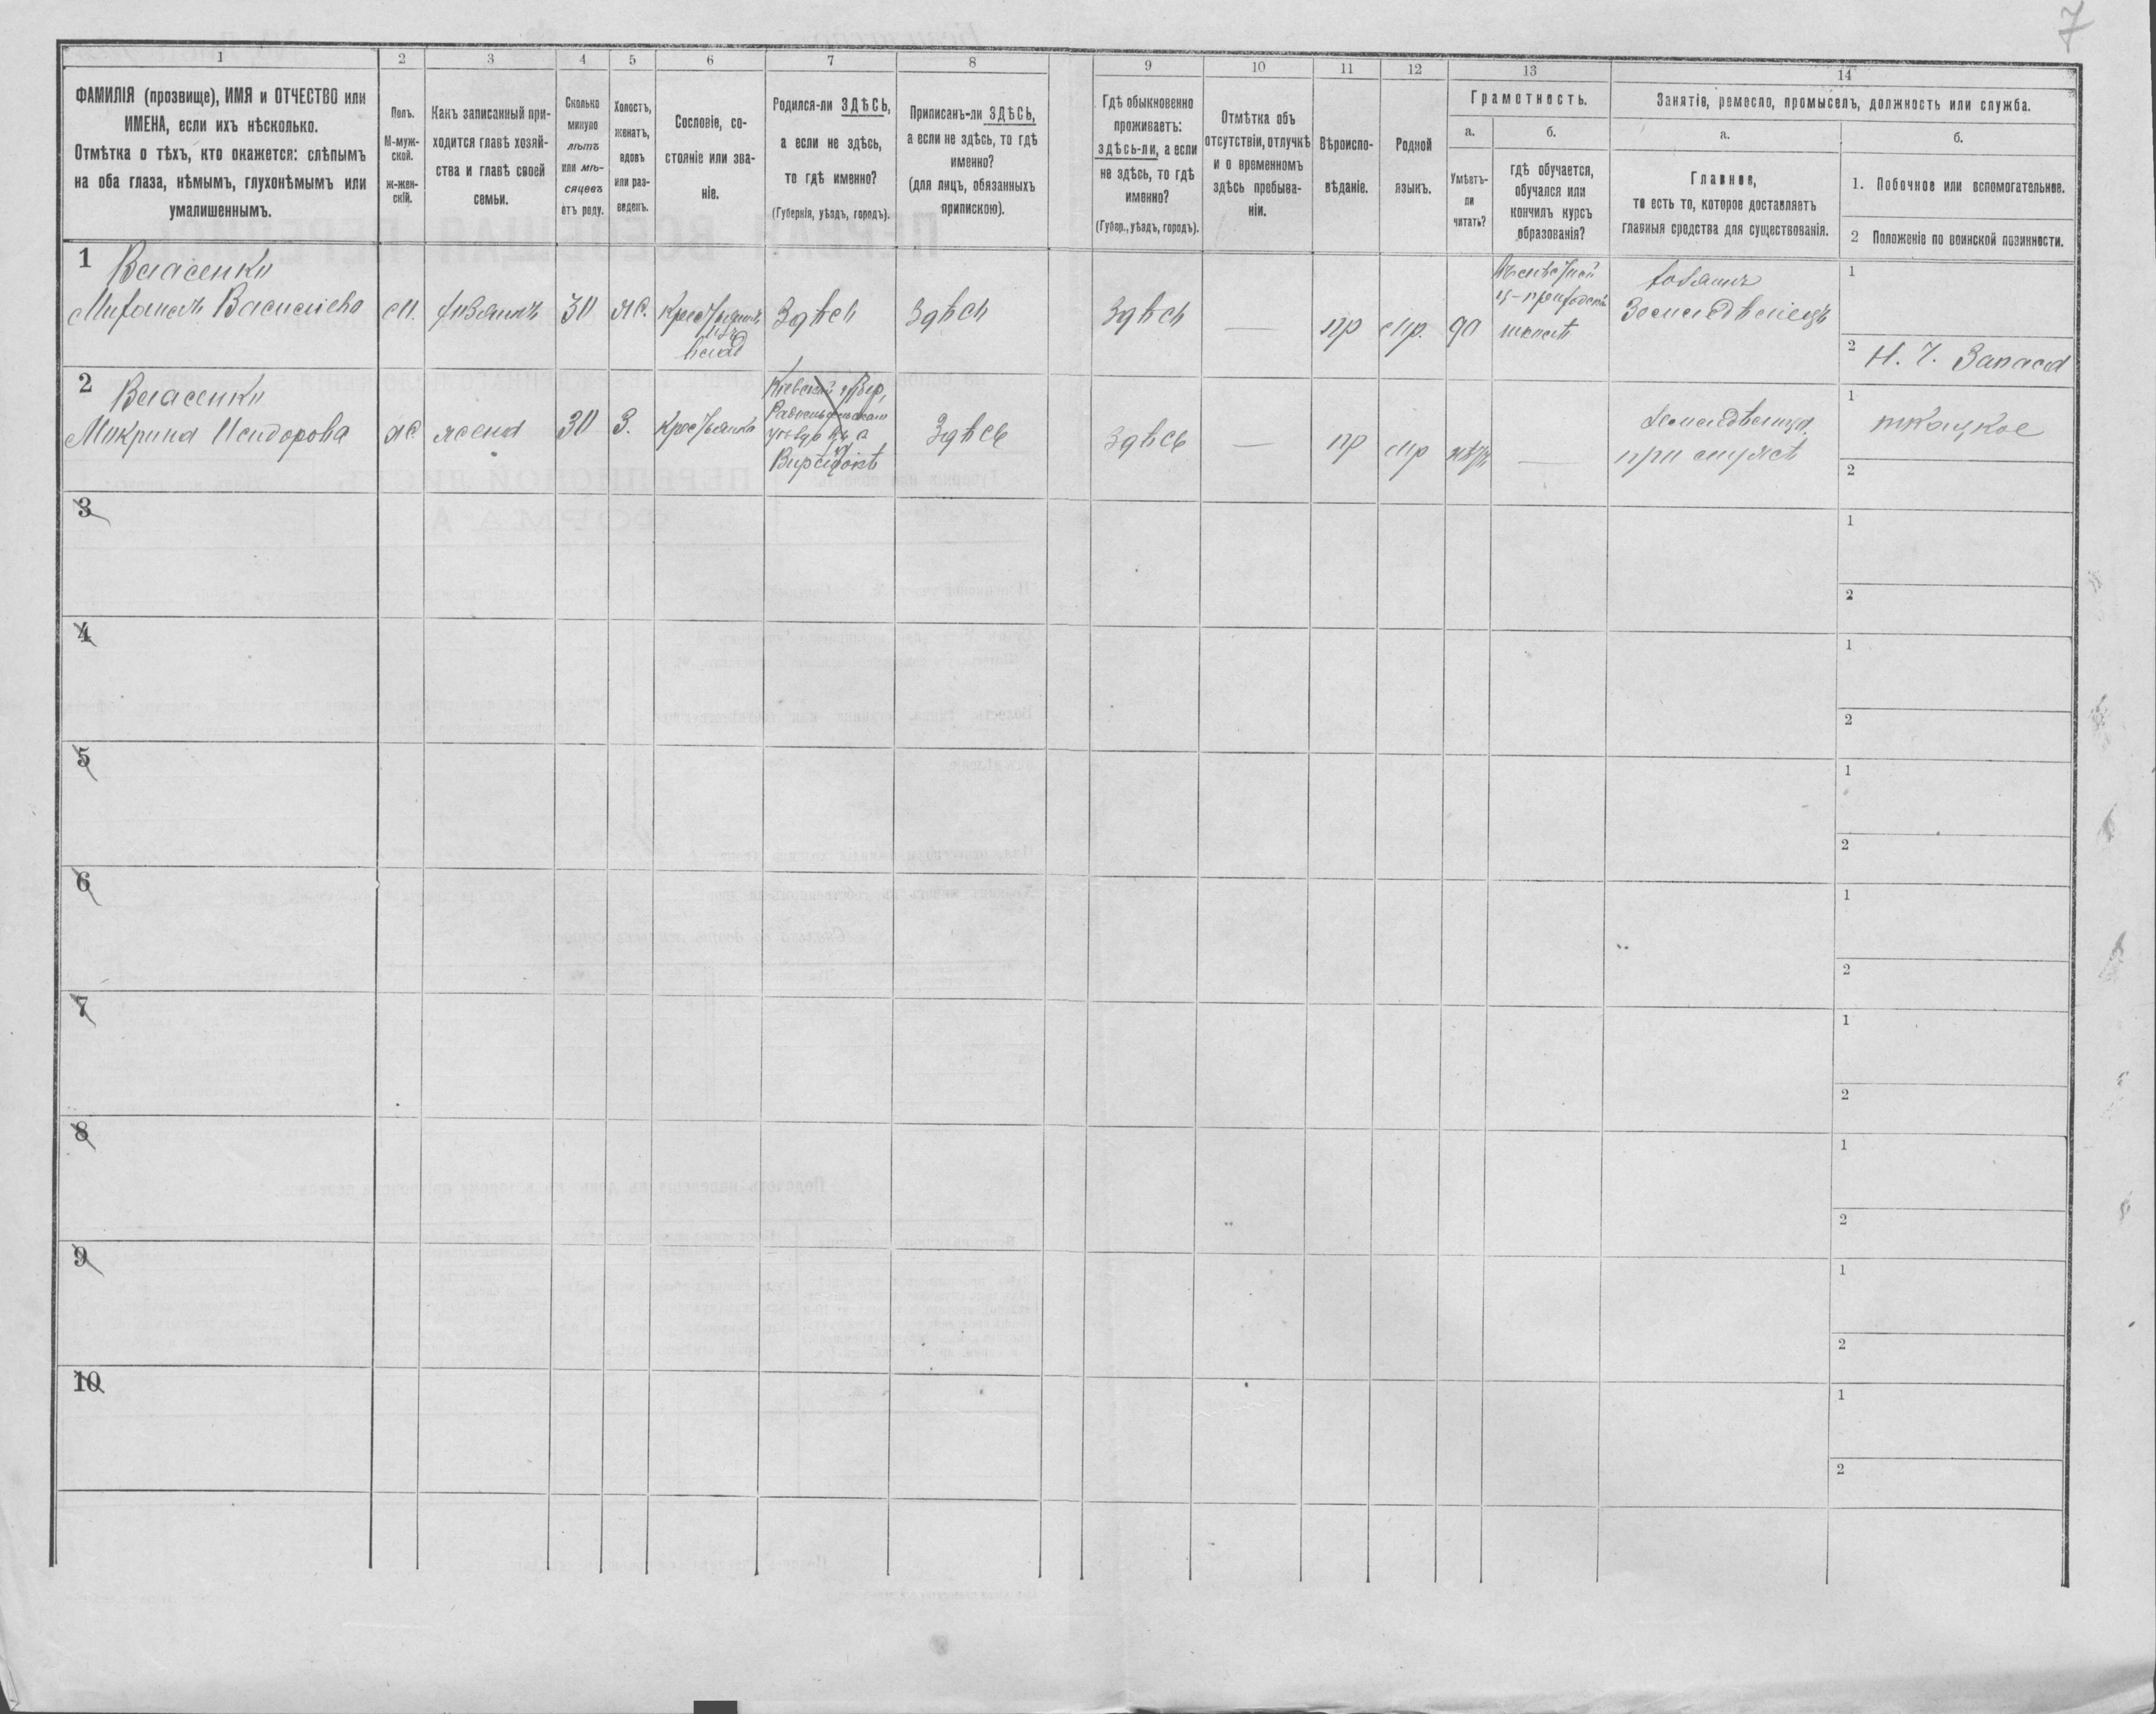 7
1 2 3 4 5 6 7 8 9 10 11 12 13 14
ФАМИЛІЯ (прозвище), ИМЯ и ОТЧЕСТВО или
ИМЕНА, если ихъ нѣсколько.
Отмѣтка о тѣхъ, кто окажется: слѣпымъ
на оба глаза, нѣмымъ, глухонѣмымъ или
умалишеннымъ.
Полъ.
М-муж-
ской.
ж-жен-
скій.
Какъ записанный при-
ходится главѣ хозяй-
ства и главѣ своей
семьи.
Сколько
минуло
лѣтъ
или мѣ-
сяцевъ
отъ роду.
Холостъ,
женатъ,
вдовъ
или раз-
веденъ.
Сословіе, со-
стояніе или зва-
ніе.
Родился-ли ЗДѢСЬ,
а если не здѣсь,
то гдѣ именно?
(Губернія, уѣздъ, городъ).
Приписанъ-ли ЗДѢСЬ,
а если не здѣсь, то гдѣ
именно?
(для лицъ, обязанныхъ
припискою).
Гдѣ обыкновенно
проживаетъ:
здѣсь-ли, а если
не здѣсь, то гдѣ
именно?
(Губер., уѣздъ, городъ).
Отмѣтка объ
отсутствіи, отлучкѣ
и о временномъ
здѣсь пребыва-
ніи.
Вѣроиспо-
вѣданіе.
Родной
языкъ.
Грамотность.
а.
Умѣетъ-
ли
читать?
б.
гдѣ обучается,
обучался или
кончилъ курсъ
образованія?
Занятіе, ремесло, промыселъ, должность или служба.
а.
Главное,
то есть то, которое доставляетъ
главныя средства для существованія.
б.
1. Побочное или вспомогательное.
2 Положеніе по воинской повинности.
1 Власенко
Митофанъ Васильевъ
М.
хозяинъ
30
Ж.
Крестьянинъ
изъ
влад
Здѣсь
Здѣсь
Здѣсь
—
пр
мр.
да
школѣ
хозяинъ
Земледѣлецъ
1
2 Н. Ч. Запаса
2 Власенко
Макрина Исидорова
Ж
жена
30
З.
Крестьянка
Кіевской губер,
Здѣсь
Здѣсь
—
пр
мр
нѣтъ
—
при мужѣ
1 ткацкое
2
3
1
2
4
1
2
5
1
2
6
1
2
7
1
2
8
1
2
9
1
2
10
1
2